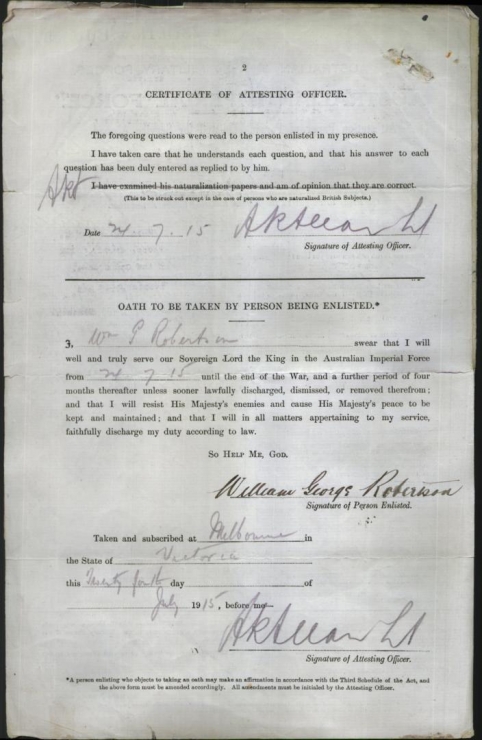 2
CERTIFICATE OF ATTESTING OFFICER.
The foregoing questions were read to the person enlisted in my presence.
I have taken care that he understands each question, and that his answer to each
question has been duly entered as replied to by him.
I have examined his naturalization papers and am of opinion that they are correct.
(This to be struck out except in the case of persons who are naturalized British Subjects.)
Date 24 . 7 . 15
Signature of Attesting Officer.
OATH TO BE TAKEN BY PERSON BEING ENLISTED.*
I, Wm G Robertson swear that I will
well and truly serve our Sovereign Lord the King in the Australian Imperial Force
from 24 7 15 until the end of the War, and a further period of four
months thereafter unless sooner lawfully discharged, dismissed, or removed therefrom;
and that I will resist His Majesty's enemies and cause His Majesty's peace to be
kept and maintained; and that I will in all matters appertaining to my service,
faithfully discharge my duty according to law.
SO HELP ME, GOD.
William George Robertson
Signature of Person Enlisted.
Taken and subscribed at Melbourne in
the State of Victoria
this Twenty fourth day of
July 1915, before me—
Lt
Signature of Attesting Officer.
*A person enlisting who objects to taking an oath may make an affirmation in accordance with the Third Schedule of the Act, and
the above form must be amended accordingly. All amendments must be initialed by the Attesting Officer.